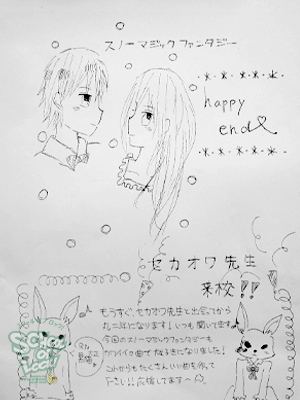 スノーマジックファンタジー
happy
end
セカオワ先生
来校!!
もうすぐ、セカオワ先生と出会ってから
二年になります!いつも聞いてます♪
今回のスノーマジックファンタジーも
カワイイ曲で
なりました!
これからもたくさんいい曲を作って
下さい!!応援してます〜
SCHOOL
OF
LOCK!